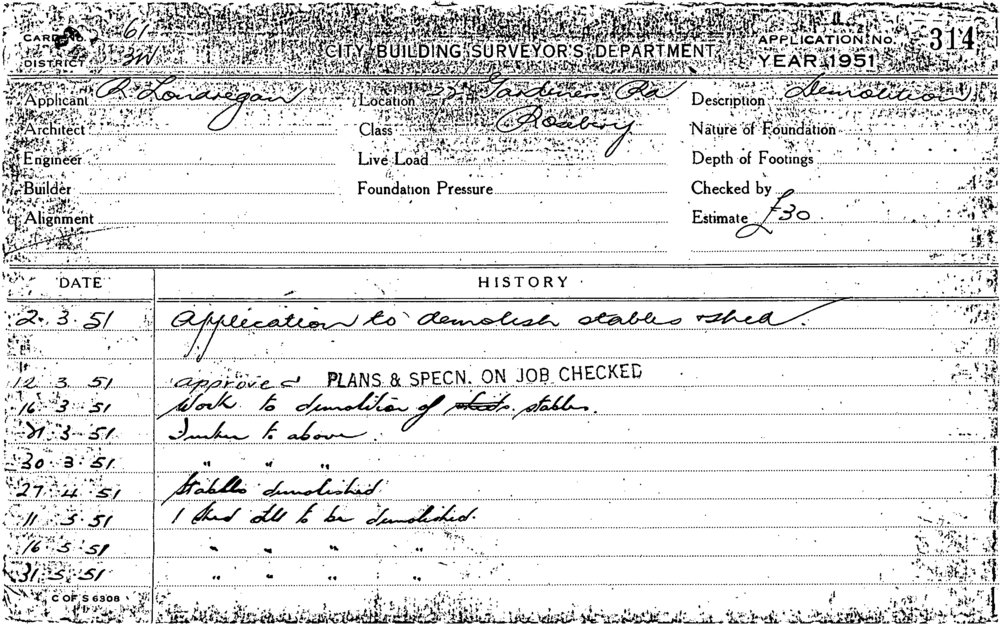 CARD No. 61
CITY BUILDING SURVEYOR'S DEPARTMENT
APPLICATION No. 314
DISTRICT 3W
YEAR 1951
Applicant R Lonavegan Location Gardiners Rd Description Demolition
Architect Class Rosebery Nature of Foundation
Engineer Live Load Depth of Footings
Builder Foundation Pressure Checked by
Alignment Estimate £30
DATE HISTORY
2. 3. 51 Application to demolish stables & shed.
12 3. 51 approved PLANS & SPECN. ON JOB CHECKED
16. 3. 51 Work to demolition of stables.
21. 3. 51. Further to above.
30. 3. 51. " " "
27. 4. 51 Stables demolished.
11. 5. 51 1 shed still to be demolished.
16. 5. 51 " " " "
31. 5. 51 " " " "
C OF S 6308